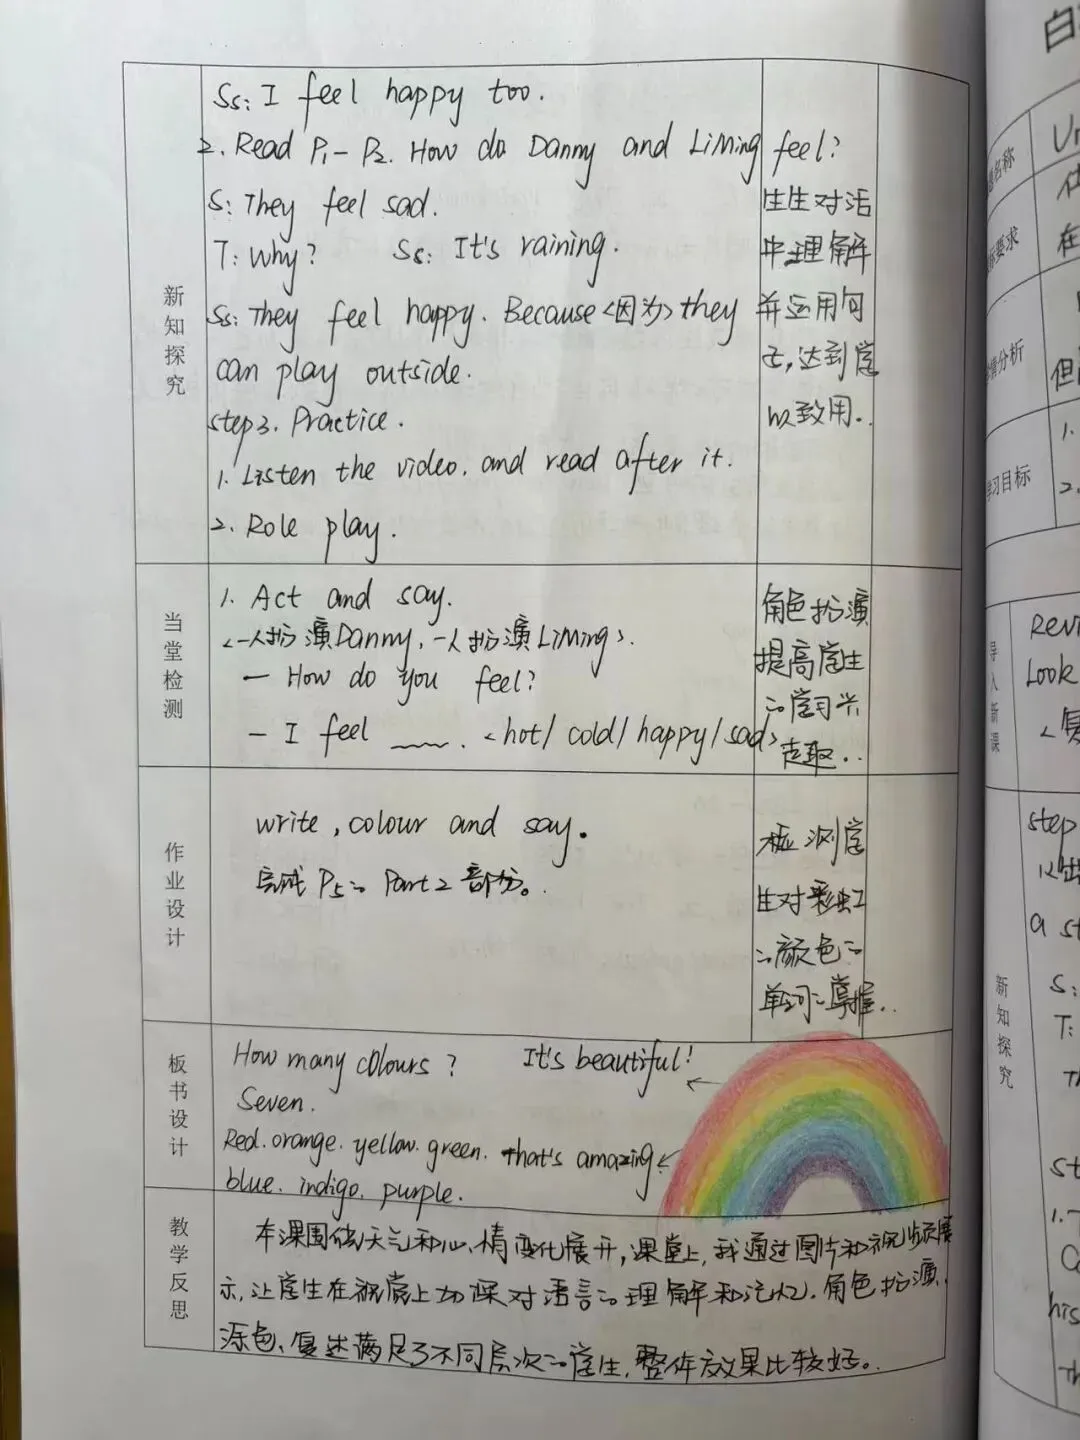 新知探究
Ss: I feel happy too.
2. Read P1-P2. How do Danny and LiMing feel?
S: They feel sad.
T: Why? Ss: It's raining.
Ss: They feel happy. Because <因为> they
can play outside.
step3. Practice.
1. Listen the video. and read after it.
2. Role play.
生生对话
中理解
并运用句
子,达到学
以致用..
当堂检测
1. Act and say.
<一人扮演Danny,一人扮演LiMing>.
— How do you feel?
— I feel ____. <hot/ cold/ happy/ sad>
角色扮演
提高学生
的学习兴
趣..
作业设计
write, colour and say.
完成P5的Part2部分。
检测学
生对彩虹
的颜色的
单词的掌握..
板书设计
How many colours? It's beautiful!
Seven.
Red. orange. yellow. green. that's amazing.
blue. indigo. purple.
教学反思
本课围绕天气和心情变化展开,课堂上,我通过图片和视频展
示,让学生在视觉上加深对语言的理解和记忆.角色扮演、
涂色、复述满足了不同层次的学生,整体效果比较好。
白
名称
要求
情分析
但
学习目标
1.
2.
导入新课
Look
新知探究
step
a st
S:
T:
st
1.
his